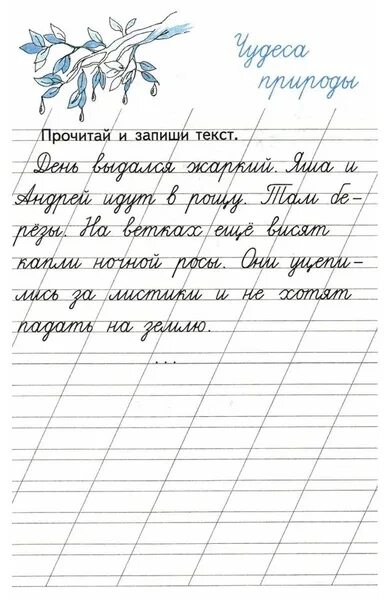 Чудеса
природы
Прочитай и запиши текст.
День выдался жаркий. Яша и
Андрей идут в рощу. Там бе-
рёзы. На ветках ещё висят
капли ночной росы. Они уцепи-
лись за листики и не хотят
падать на землю.
...